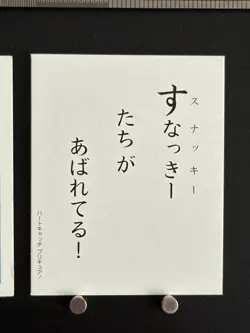 すなっきー
スナッキー
たちが
あばれてる!
ハートキャッチプリキュア!